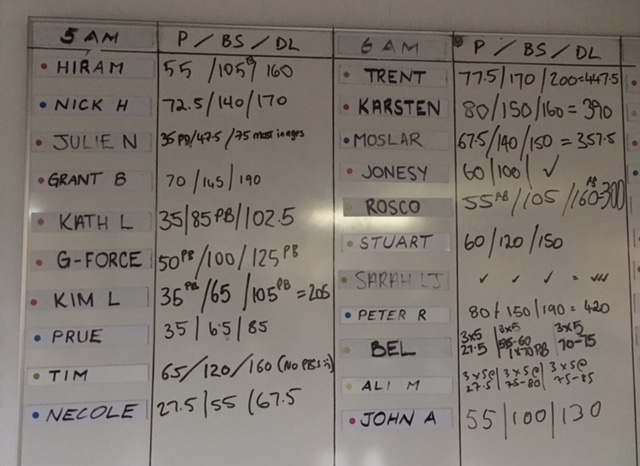 5 AM P / BS / DL
HIRAM 55 / 105 / 160
NICK H 72.5 / 140 / 170
JULIE N 35 PB / 47.5 / 75 most inages
GRANT B 70 / 145 / 190
KATH L 35 | 85 PB / 102.5
G-FORCE 50 PB / 100 / 125 PB
KIM L 35 PB / 65 / 105 PB = 205
PRUE 35 | 65 / 85
TIM 65 / 120 / 160 (NO PBS :)
NECOLE 27.5 | 55 / 67.5
6 AM P / BS / DL
TRENT 77.5 / 170 / 200 = 447.5
KARSTEN 80 / 150 / 160 = 390
MOSLAR 67.5 / 140 / 150 = 357.5
JONESY 60 | 100 | ✓
ROSCO 55 PB / 105 / 160 PB - 300
STUART 60 / 120 / 150
SARAH LJ ✓ ✓ ✓ = ✓✓✓
PETER R 80 / 150 / 190 = 420
BEL 3x5 27.5 | 3x5 55-60 1x70 PB | 3x5 70-75
ALI M 3x5@ 27.5 | 3x5@ 75-80 | 3x5@ 75-85
JOHN A 55 | 100 | 130